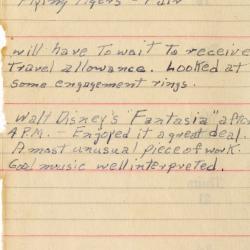 Flying Tigers - Fair
will have to wait to receive
Travel allowance. Looked at
some engagement rings.
Walt Disney's "Fantasia" after
4 P.M. - Enjoyed it a great deal.
A most unusual piece of work.
Good music well interpreted.